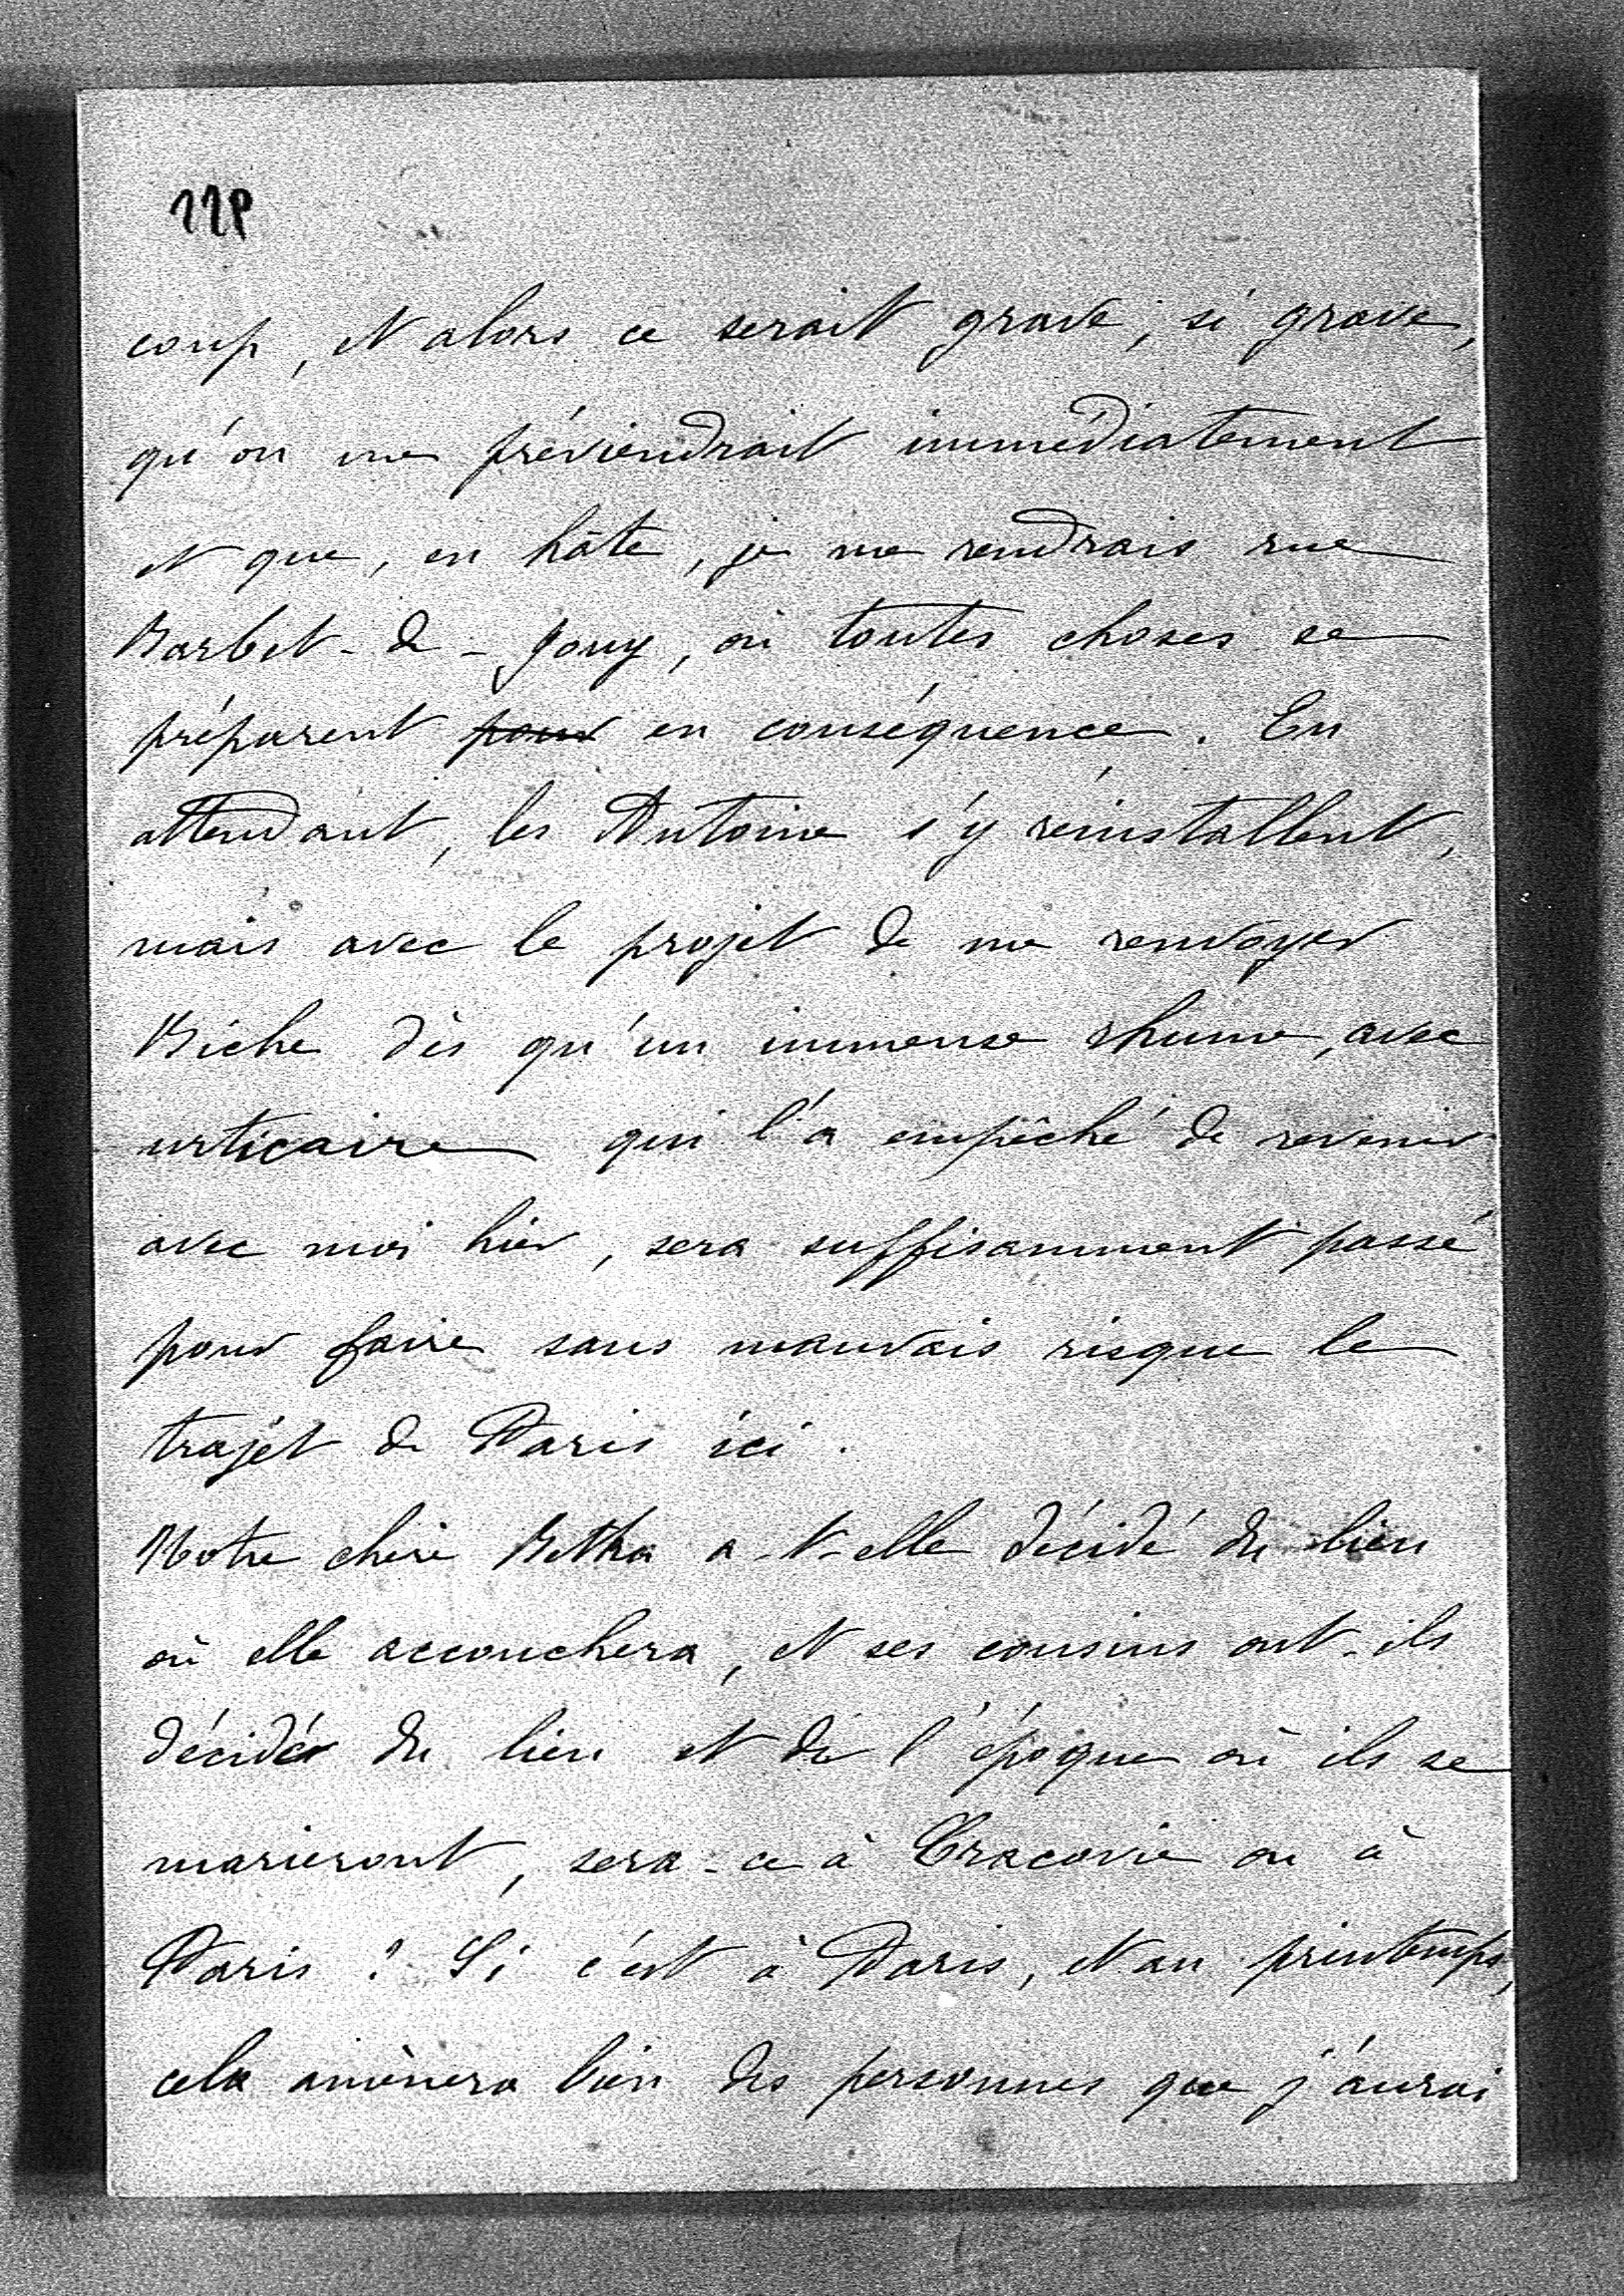 118
coup, et alors ce serait grave, si grave,
qu'on me préviendrait immédiatement
et que, en hâte, je me rendrais rue
Barbet-de-Jouy, où toutes choses se
préparent pour en conséquence. En
attendant, les Antoine s'y réinstallent,
mais avec le projet de me renvoyer
Biche dès qu'un immense rhume, avec
urticaire qui l'a empêché de revenir
avec moi hier, sera suffisamment passé
pour faire sans mauvais risque le
trajet de Paris ici.
Notre chère Betka a-t-elle décidé du lieu
où elle accouchera, et ses cousins ont-ils
décidé du lieu et de l'époque où ils se
marieront, sera-ce à Cracovie ou à
Paris ? Si c'est à Paris, et au printemps,
cela amènera bien des personnes que j'aurai